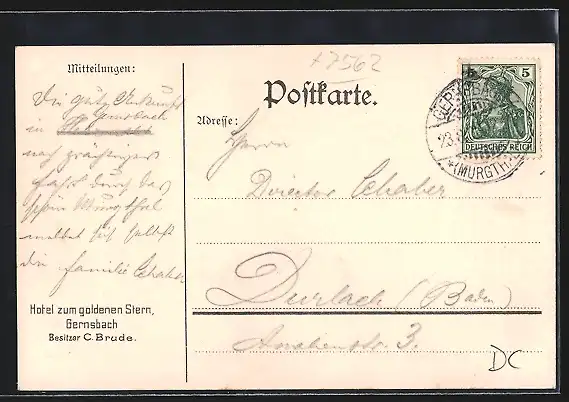 +7562
Mitteilungen:
Postkarte.
Die gute Ankunft
Gernsbach
in
nach prächtiger
Fahrt durch das
schöne Murgthal
meldet
die Familie Schaber
Adresse:
Herrn
Director Schaber
Durlach (Baden)
3.
5 5
DEUTSCHES REICH
GERNSBACH
23.
*(MURGTH
Hotel zum goldenen Stern,
Gernsbach
Besitzer C. Brude.
DC